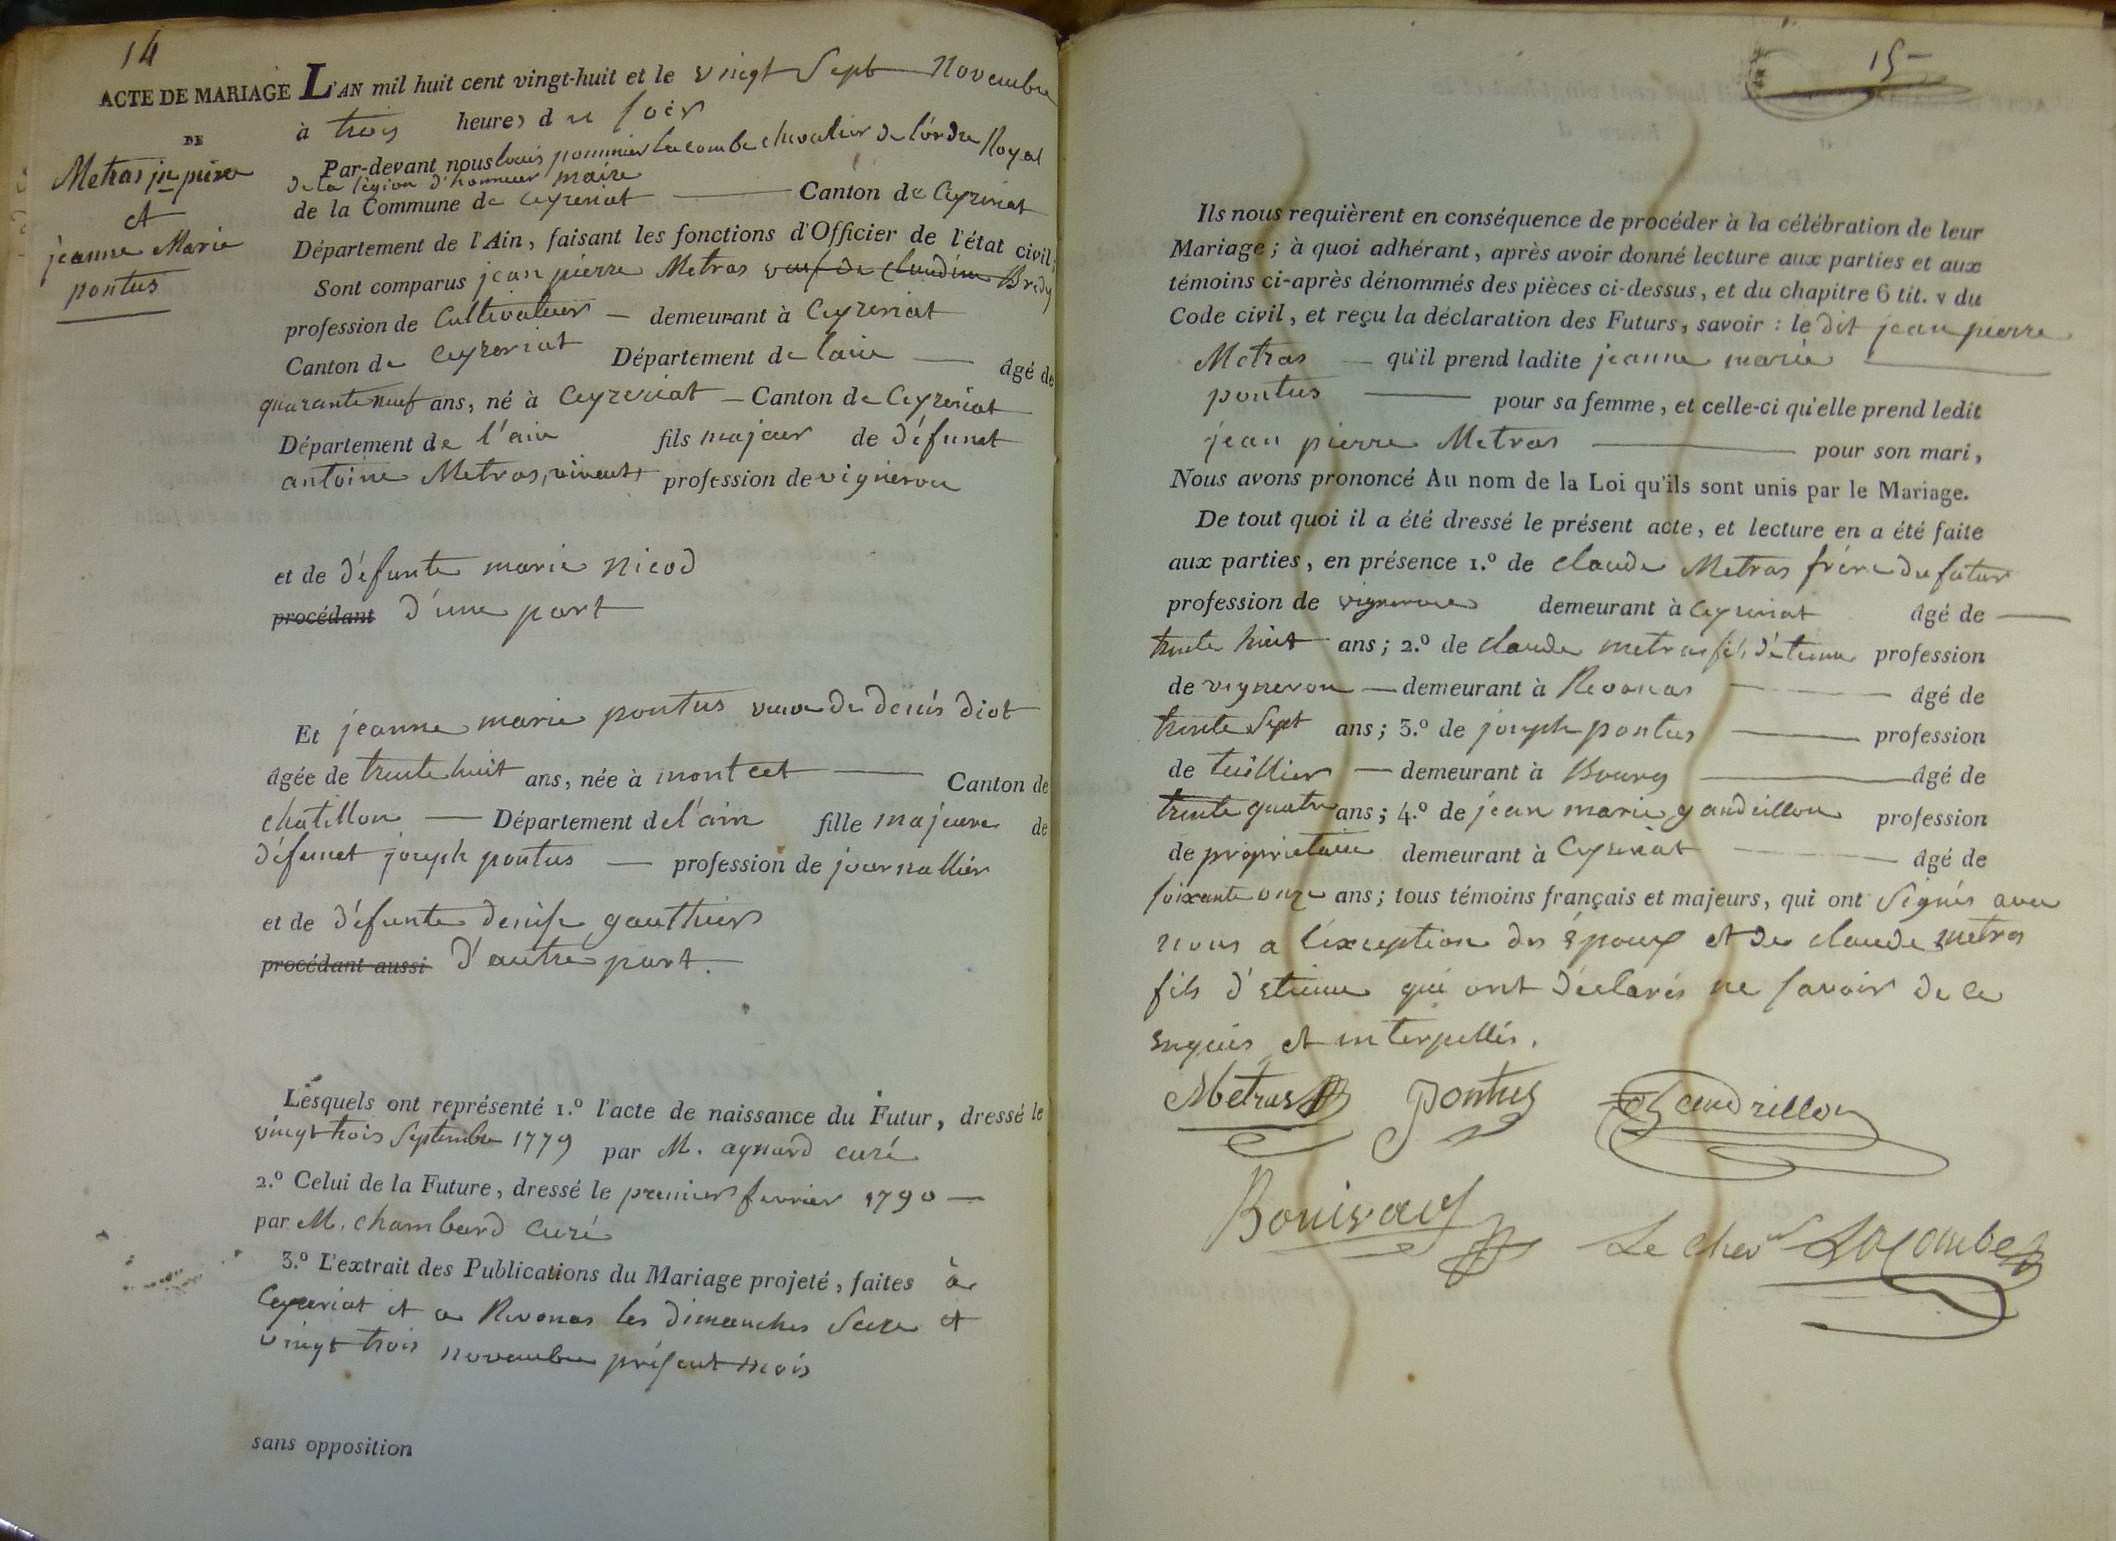 14
ACTE DE MARIAGE
DE
Metras jn pierre
et
jeanne Marie
pontus
L'AN mil huit cent vingt-huit et le vingt Sept Novembre
à trois heures du soir
Par-devant nous louis pommier lacombe chevalier de l'ordre Royal
de la légion d'honneur maire
de la Commune de ceyzeriat Canton de Ceyzeriat
Département de l'Ain, faisant les fonctions d'Officier de l'état civil;
Sont comparus jean pierre Metras veuf de Claudine Bredy
profession de Cultivateur demeurant à Ceyzeriat
Canton de ceyzeriat Département de l'ain âgé de
quarante neuf ans, né à Ceyzeriat Canton de Ceyzeriat
Département de l'ain fils majeur de défunt
antoine Metras, vivant, profession de vigneron
et de défunte marie Nicod
procédant d'une part
Et jeanne marie pontus veuve de denis diot
âgée de trente huit ans, née à montcet Canton de
chatillon Département de l'ain fille majeure de
défunt joseph pontus profession de journallier
et de défunte denise gauthier
procédant aussi d'autre part.
Lesquels ont représenté 1.º l'acte de naissance du Futur, dressé le
vingt trois Septembre 1779 par M. aynard curé
2.º Celui de la Future, dressé le premier fevrier 1790
par M. chambard curé
3.º L'extrait des Publications du Mariage projeté, faites à
Ceyzeriat et a Revonas les dimanches Seize et
vingt trois novembre présent mois
sans opposition
15
Ils nous requièrent en conséquence de procéder à la célébration de leur
Mariage; à quoi adhérant, après avoir donné lecture aux parties et aux
témoins ci-après dénommés des pièces ci-dessus, et du chapitre 6 tit. v du
Code civil, et reçu la déclaration des Futurs, savoir: le dit jean pierre
Metras qu'il prend ladite jeanne marie
pontus pour sa femme, et celle-ci qu'elle prend ledit
jean pierre Metras pour son mari,
Nous avons prononcé Au nom de la Loi qu'ils sont unis par le Mariage.
De tout quoi il a été dressé le présent acte, et lecture en a été faite
aux parties, en présence 1.º de claude Metras frère du futur
profession de vigneron demeurant à ceyzeriat âgé de
trente huit ans; 2.º de claude metras fils d'étienne profession
de vigneron demeurant à Revonas âgé de
trente Sept ans; 3.º de joseph pontus profession
de tuillier demeurant à Bourg âgé de
trente quatre ans; 4.º de jean marie gandrillon profession
de propriétaire demeurant à Ceyzeriat âgé de
soixante onze ans; tous témoins français et majeurs, qui ont Signés avec
nous a l'éxception des époux et de claude metras
fils d'etienne qui ont déclarés ne savoir de ce
enquis et interpellés.
Metras Pontus Gandrillon
Le chev.r Lacombe